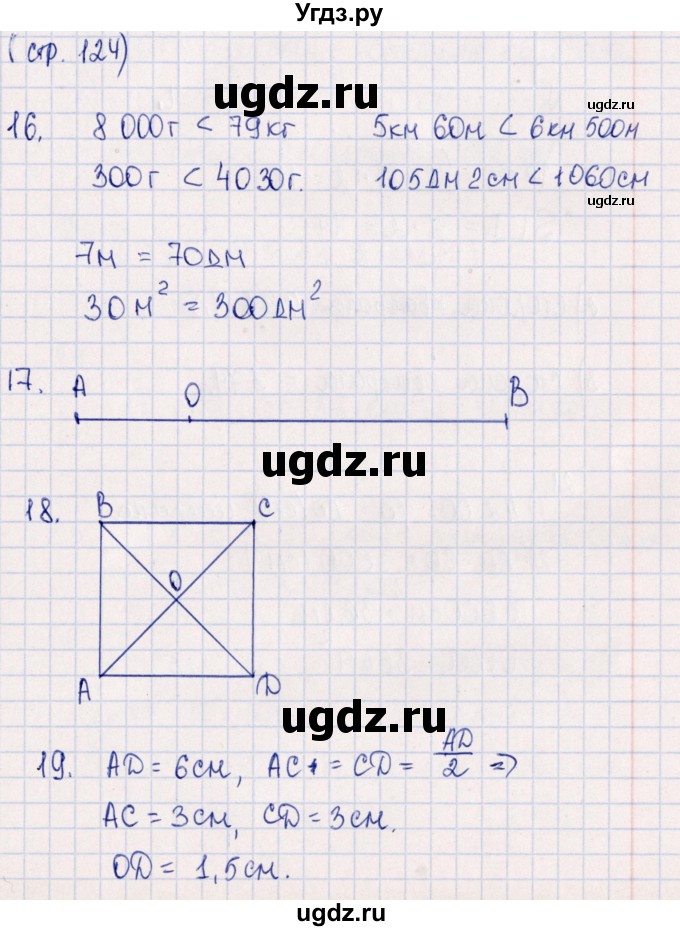 Угдз.ру
(стр. 124)
ugdz.ru
ugdz.ru
16. 8 000г < 79кг 5км 60м < 6км 500м
300г < 4030г. 105дм 2см < 1060см
ugdz.ru
7м = 70дм
30м² = 300дм²
17. A O B
ugdz.ru
18. B C
O
A D
ugdz.ru
19. AD = 6см, AC = CD = AD/2 =>
AC = 3см, CD = 3см.
OD = 1,5см.
ugdz.ru